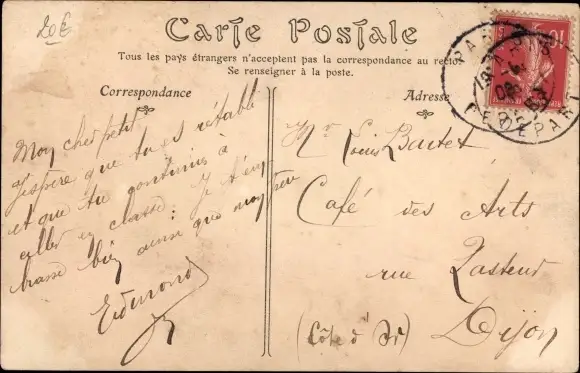 20€
Carte Postale
Tous les pays étrangers n'acceptent pas la correspondance au recto
Se renseigner à la poste.
Correspondance
Adresse
Mon cher petit
J'espère que tu es rétabli
et que tu continues à
aller en classe. Je t'em
brasse bien ainsi que
Edmond
Mr Louis Bautet
Café des Arts
rue Pasteur
Dijon
(Côte d'Or)
10
PARIS
DEPART